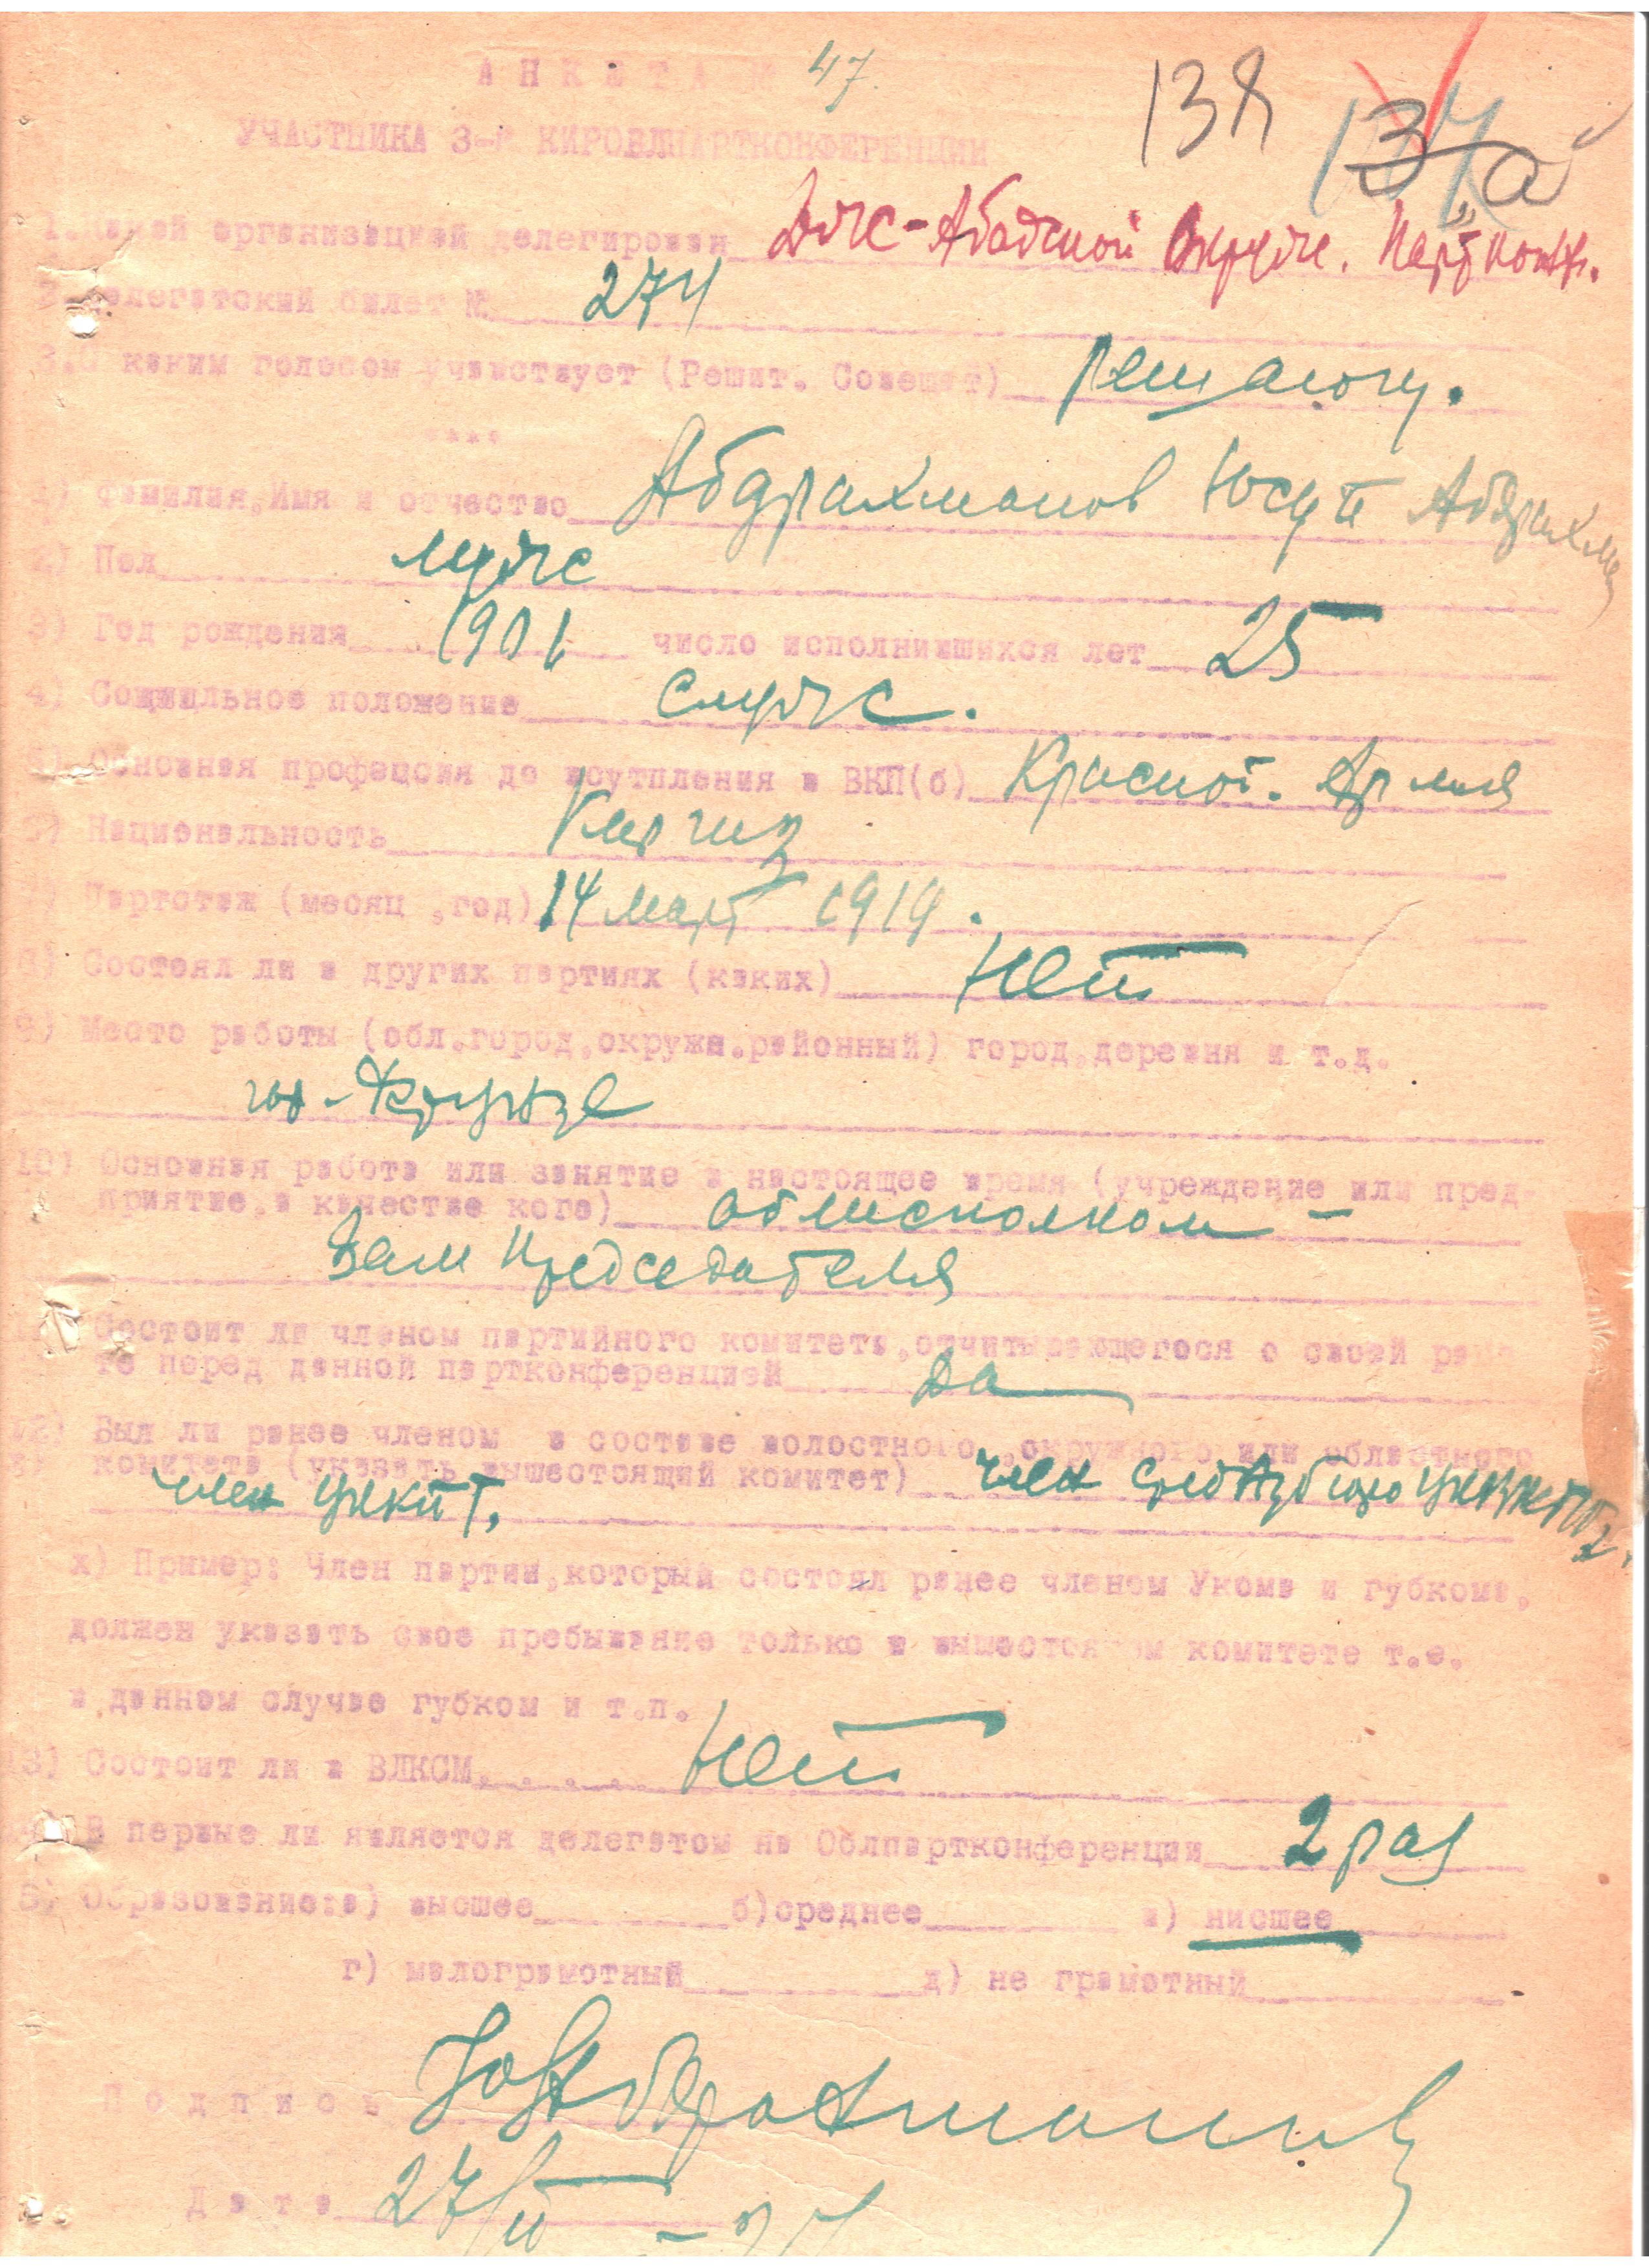 АНКЕТА № 47.
138 137 3 а
УЧАСТНИКА 3-й КИРОБЛПАРТКОНФЕРЕНЦИИ
1. Какой организацией делегирован Дж-Абадской Окружн. Партконф.
2. Делегатский билет № 274
3. С каким голосом участвует (Решит. Совещат) решающ.
****
1) Фамилия, Имя и отчество Абдрахманов Юсуп Абдрахма
2) Пол муж
3) Год рождения 1901 число исполнившихся лет 25
4) Социальное положение служ.
5) Основная профецсия до всутпления в ВКП(б) Красной. Армия
6) Национальность Киргиз
7) Партстаж (месяц, год) 14 март 1919.
8) Состоял ли в других партиях (каких) Нет
9) Место работы (обл. город, окружн. районный) город, деревня и т.д.
Фрунзе
10) Основная работа или занятие в настоящее время (учреждение или пред-
приятие, в качестве кого) облисполком –
Зам председателя
11) Состоит ли членом партийного комитета, отчитывающегося о своей рабо
те перед данной партконференцией Да
12) Был ли ранее членом в составе волостного, окружного или областного
х) комитета (указать вышестоящий комитет) член СредАзбюро ЦКВКПб
член ЦККПТ.
х) Пример: Член партии, который состоял ранее членом Укома и губкома,
должен указать свое пребывание только в вышестоя м комитете т.е.
в данном случае губком и т.п.
13) Состоит ли в ВЛКСМ. Нет
14) В первые ли является делегатом на Облпартконференции 2 раз
15) Образование: а) высшее б) среднее в) нисшее
г) малограмотный д) не грамотный.
Подпись ЮАбдрахманов
Дата 27/III – 27